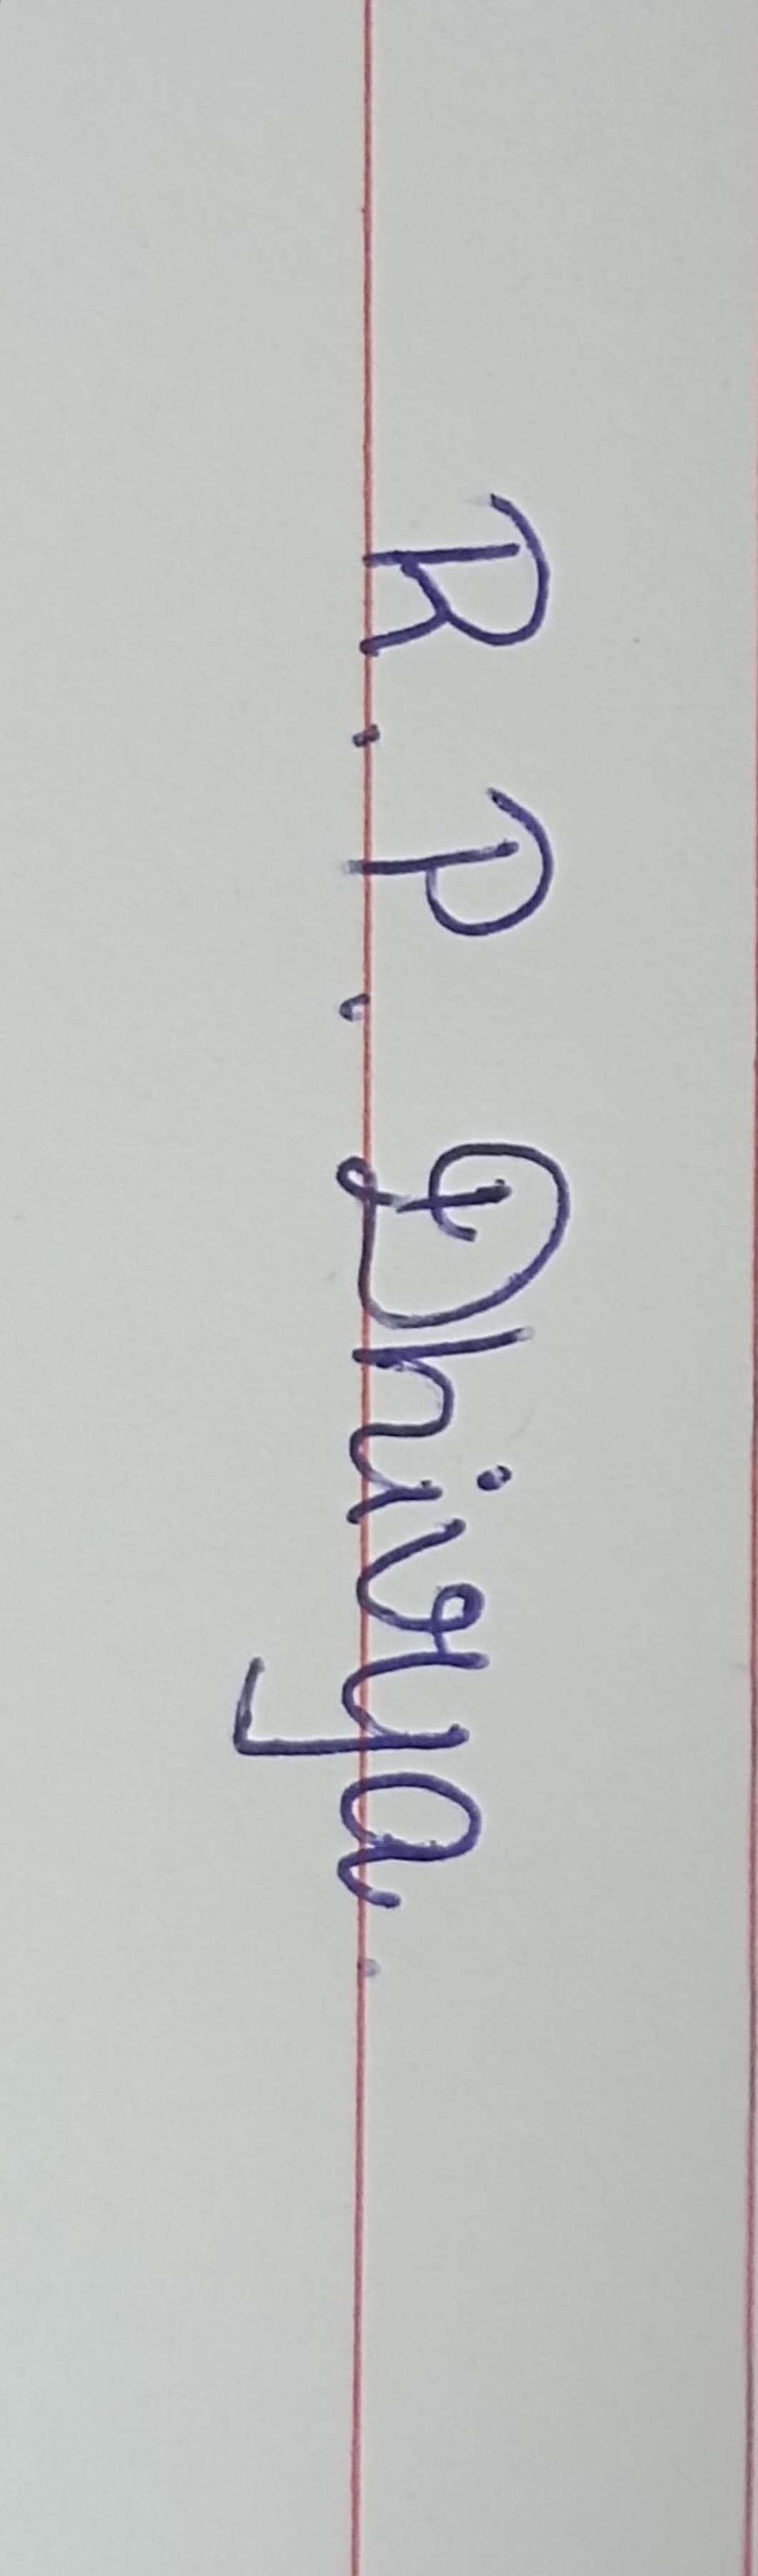 R. P. Dhivya.